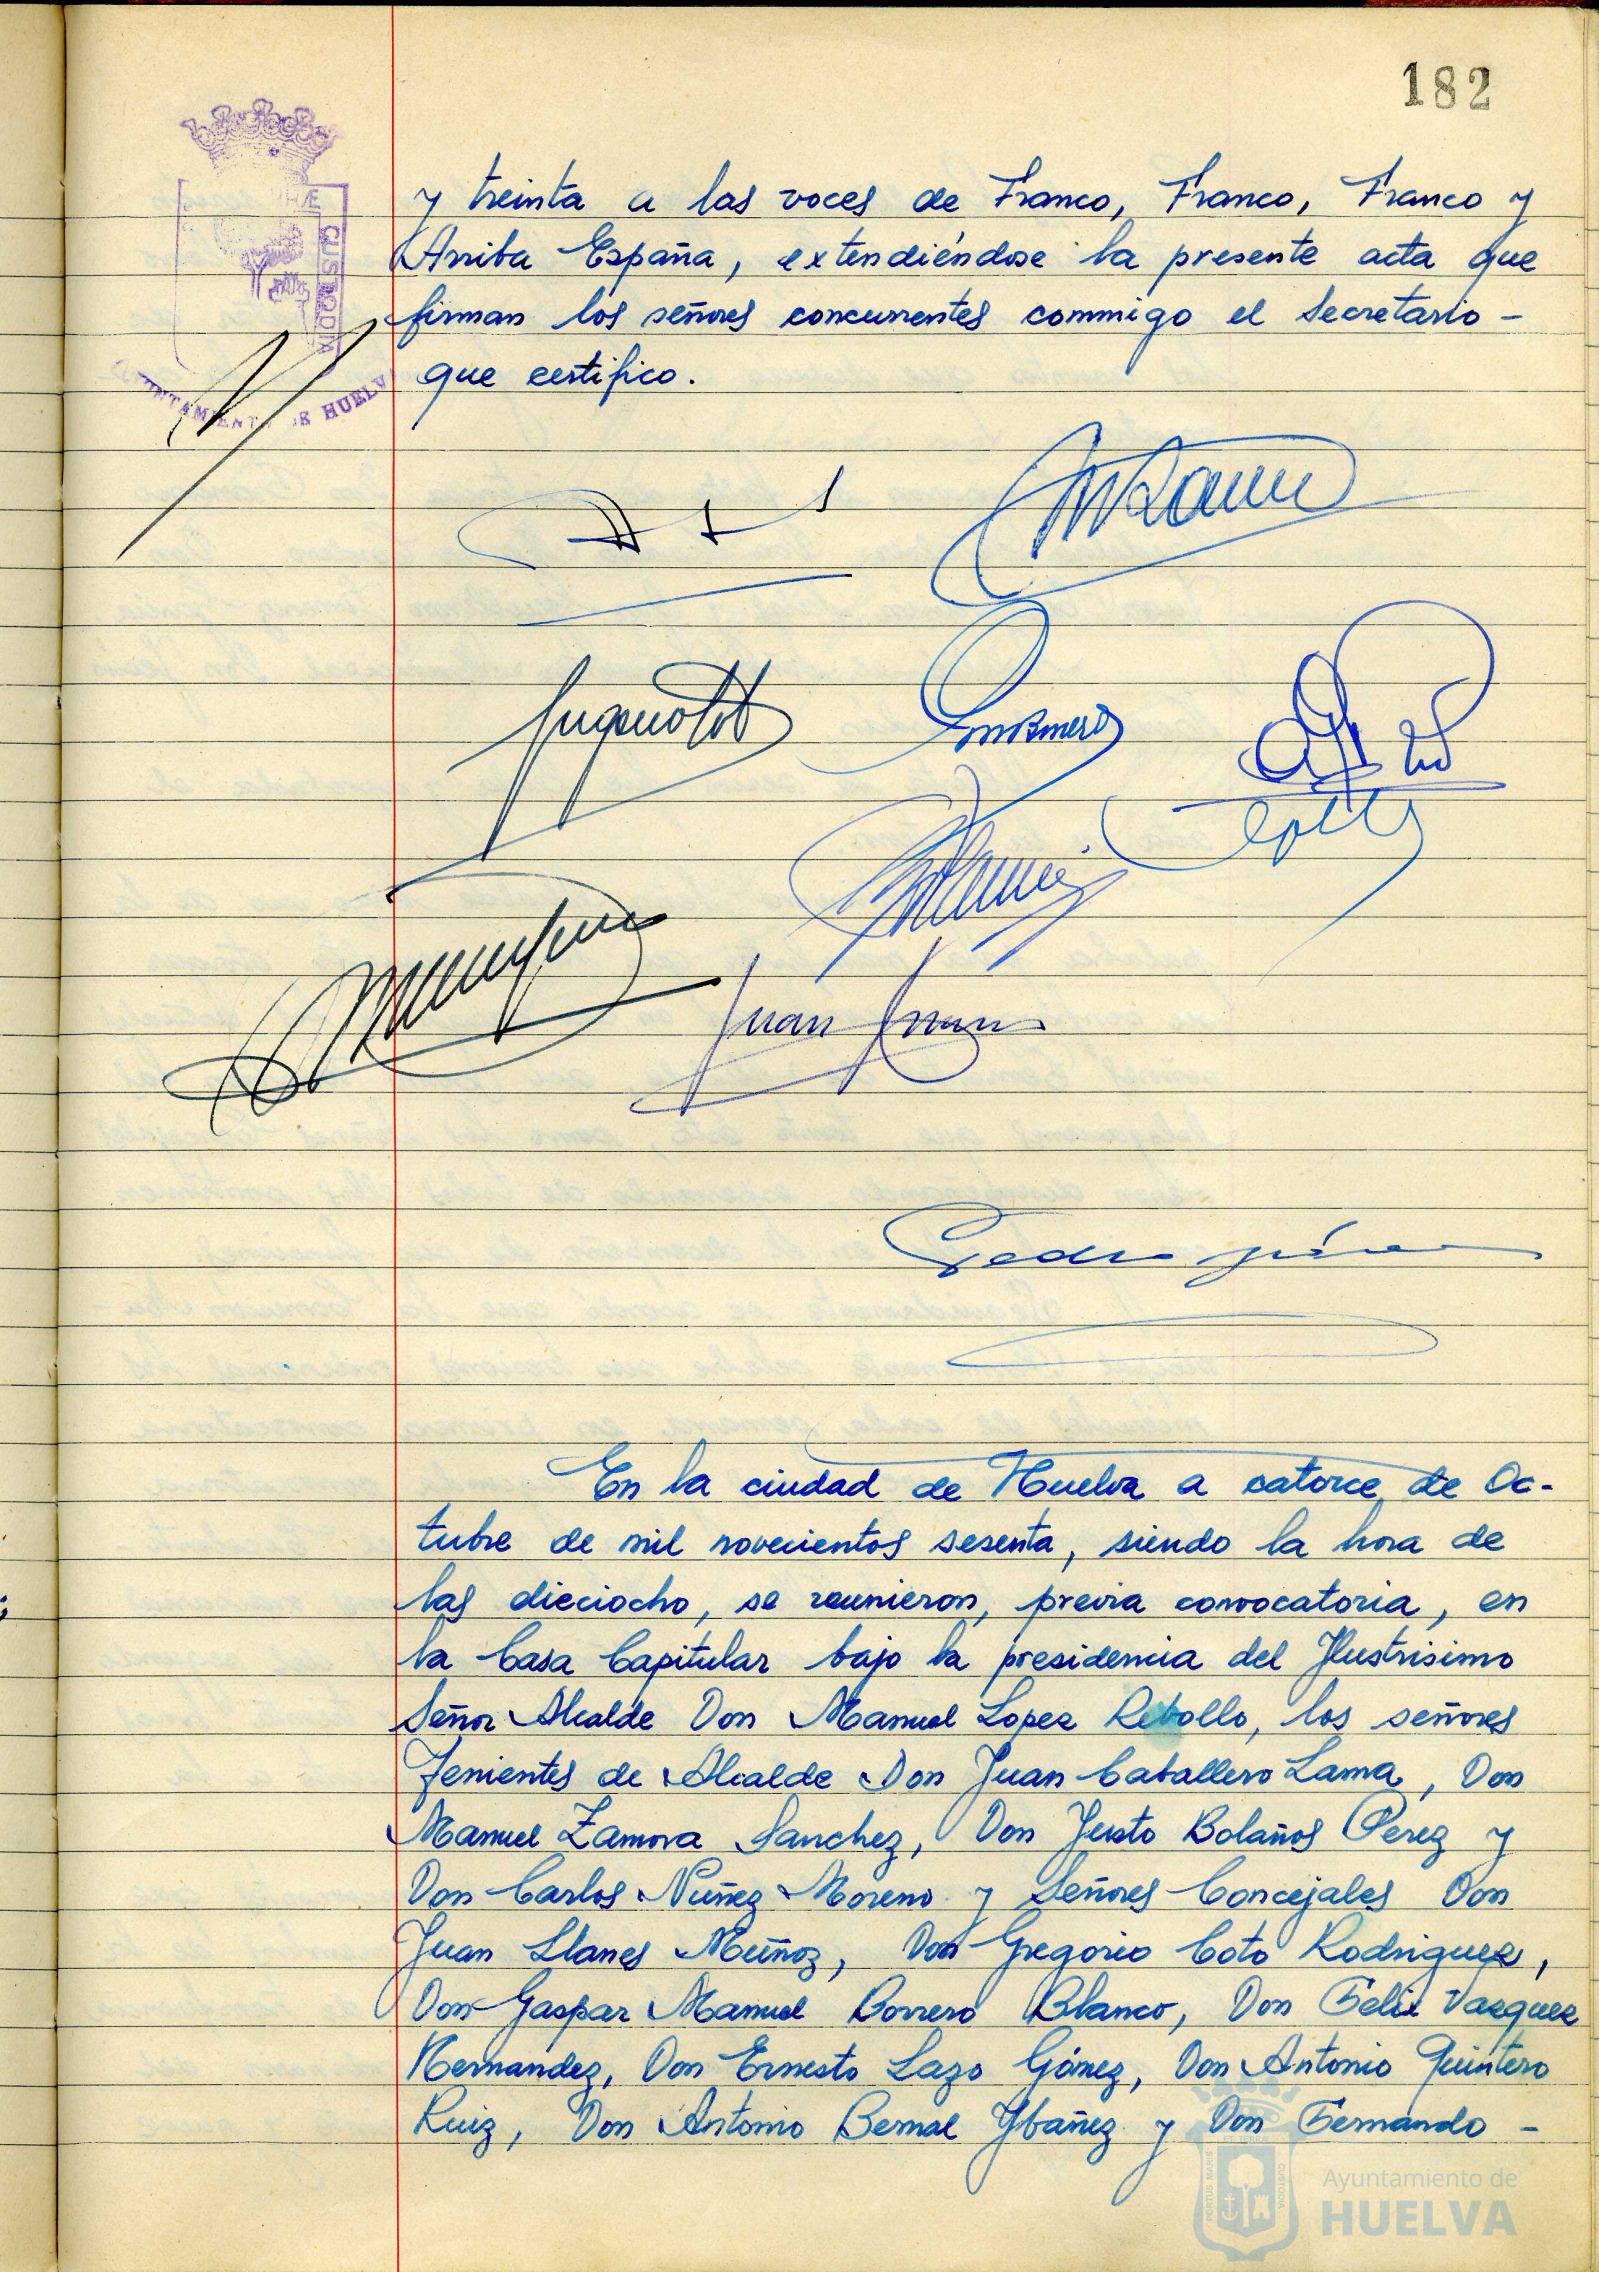 182
y treinta a las voces de Franco, Franco, Franco y
Arriba España, extendiéndose la presente acta que
firman los señores concurrentes conmmigo el Secretario -
que certifico.
CUSTODIA
AYUNTAMIENTO DE HUELVA
Juan
Pedro
En la ciudad de Huelva a catorce de Oc-
tubre de mil novecientos sesenta, siendo la hora de
las dieciocho, se reunieron, previa convocatoria, en
la Casa Capitular bajo la presidencia del Ilustrisimo
Señor Alcalde Don Manuel Lopez Rebollo, los señores
Tenientes de Alcalde Don Juan Caballero Lama, Don
Manuel Zamora Sanchez, Don Justo Bolaños Perez y
Don Carlos Nuñez Moreno y Señores Concejales Don
Juan Llanes Muñoz, Don Gregorio Coto Rodriguez,
Don Gaspar Manuel Borrero Blanco, Don Felix Vazquez
Hernandez, Don Ernesto Lazo Gómez, Don Antonio Quintero
Ruiz, Don Antonio Bernal Ybañez y Don Fernando -
Ayuntamiento de
HUELVA